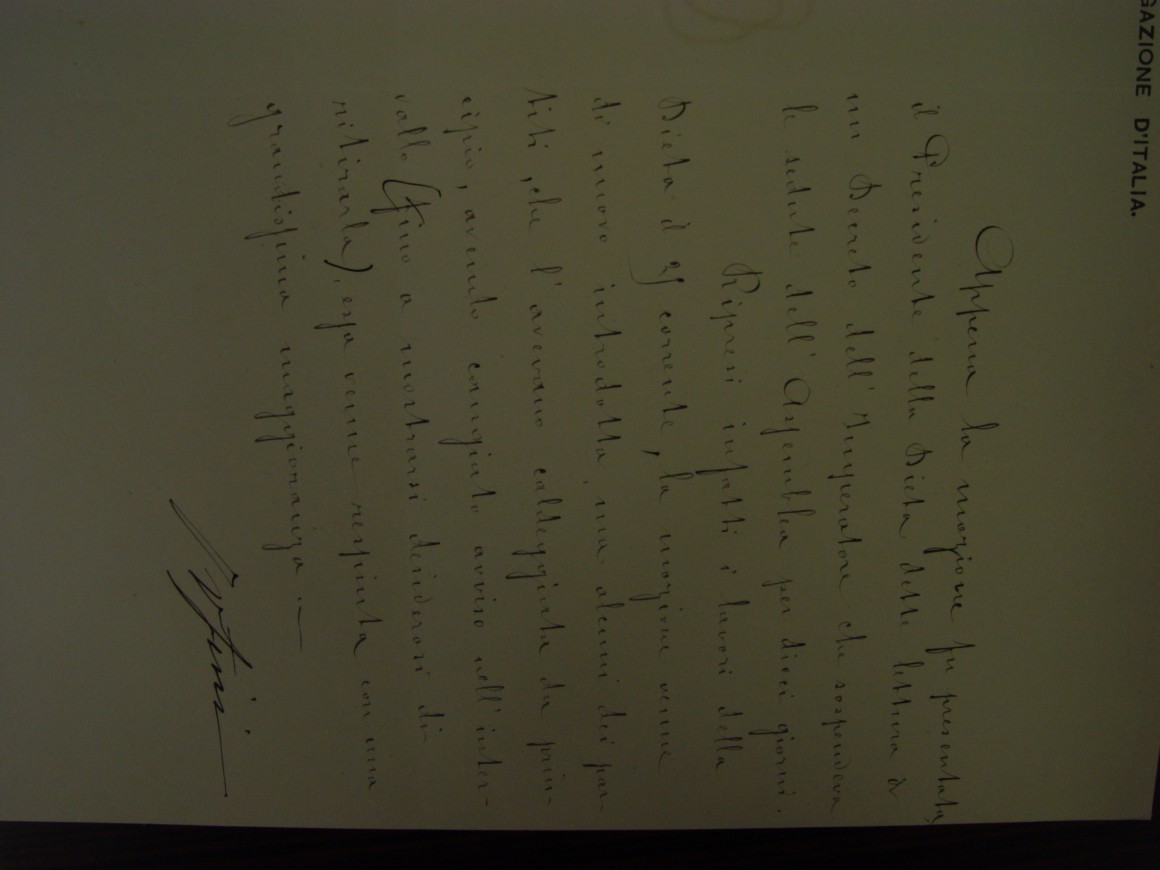 GAZIONE D'ITALIA.
Appena la mozione fu presentata,
il Presidente della Dieta dette lettura di
un Decreto dell' Imperatore che sospendeva
le sedute dell' Assemblea per dieci giorni.
Ripresi infatti i lavori della
Dieta il 25 corrente, la mozione venne
di nuovo introdotta, ma alcuni dei par-
titi, che l' avevano caldeggiata da prin-
cipio, avendo cangiato avviso nell' inter-
vallo (fino a mostrarsi desiderosi di
ritirarla), essa venne respinta con una
grandissima maggioranza. —